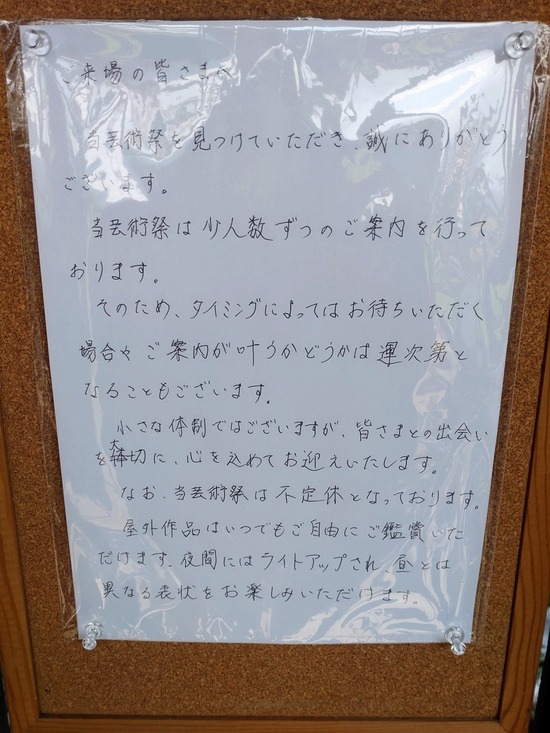 ご来場の皆さまへ
当芸術祭を見つけていただき、誠にありがとう
ございます。
当芸術祭は少人数ずつのご案内を行って
おります。
そのため、タイミングによってはお待ちいただく
場合や ご案内が叶うかどうかは運次第と
なることもございます。
小さな体制ではございますが、皆さまとの出会い
を大切に、心を込めてお迎えいたします。
なお、当芸術祭は不定休となっております。
屋外作品はいつでもご自由にご鑑賞いた
だけます。夜間にはライトアップされ、昼とは
異なる表状をお楽しみいただけます。